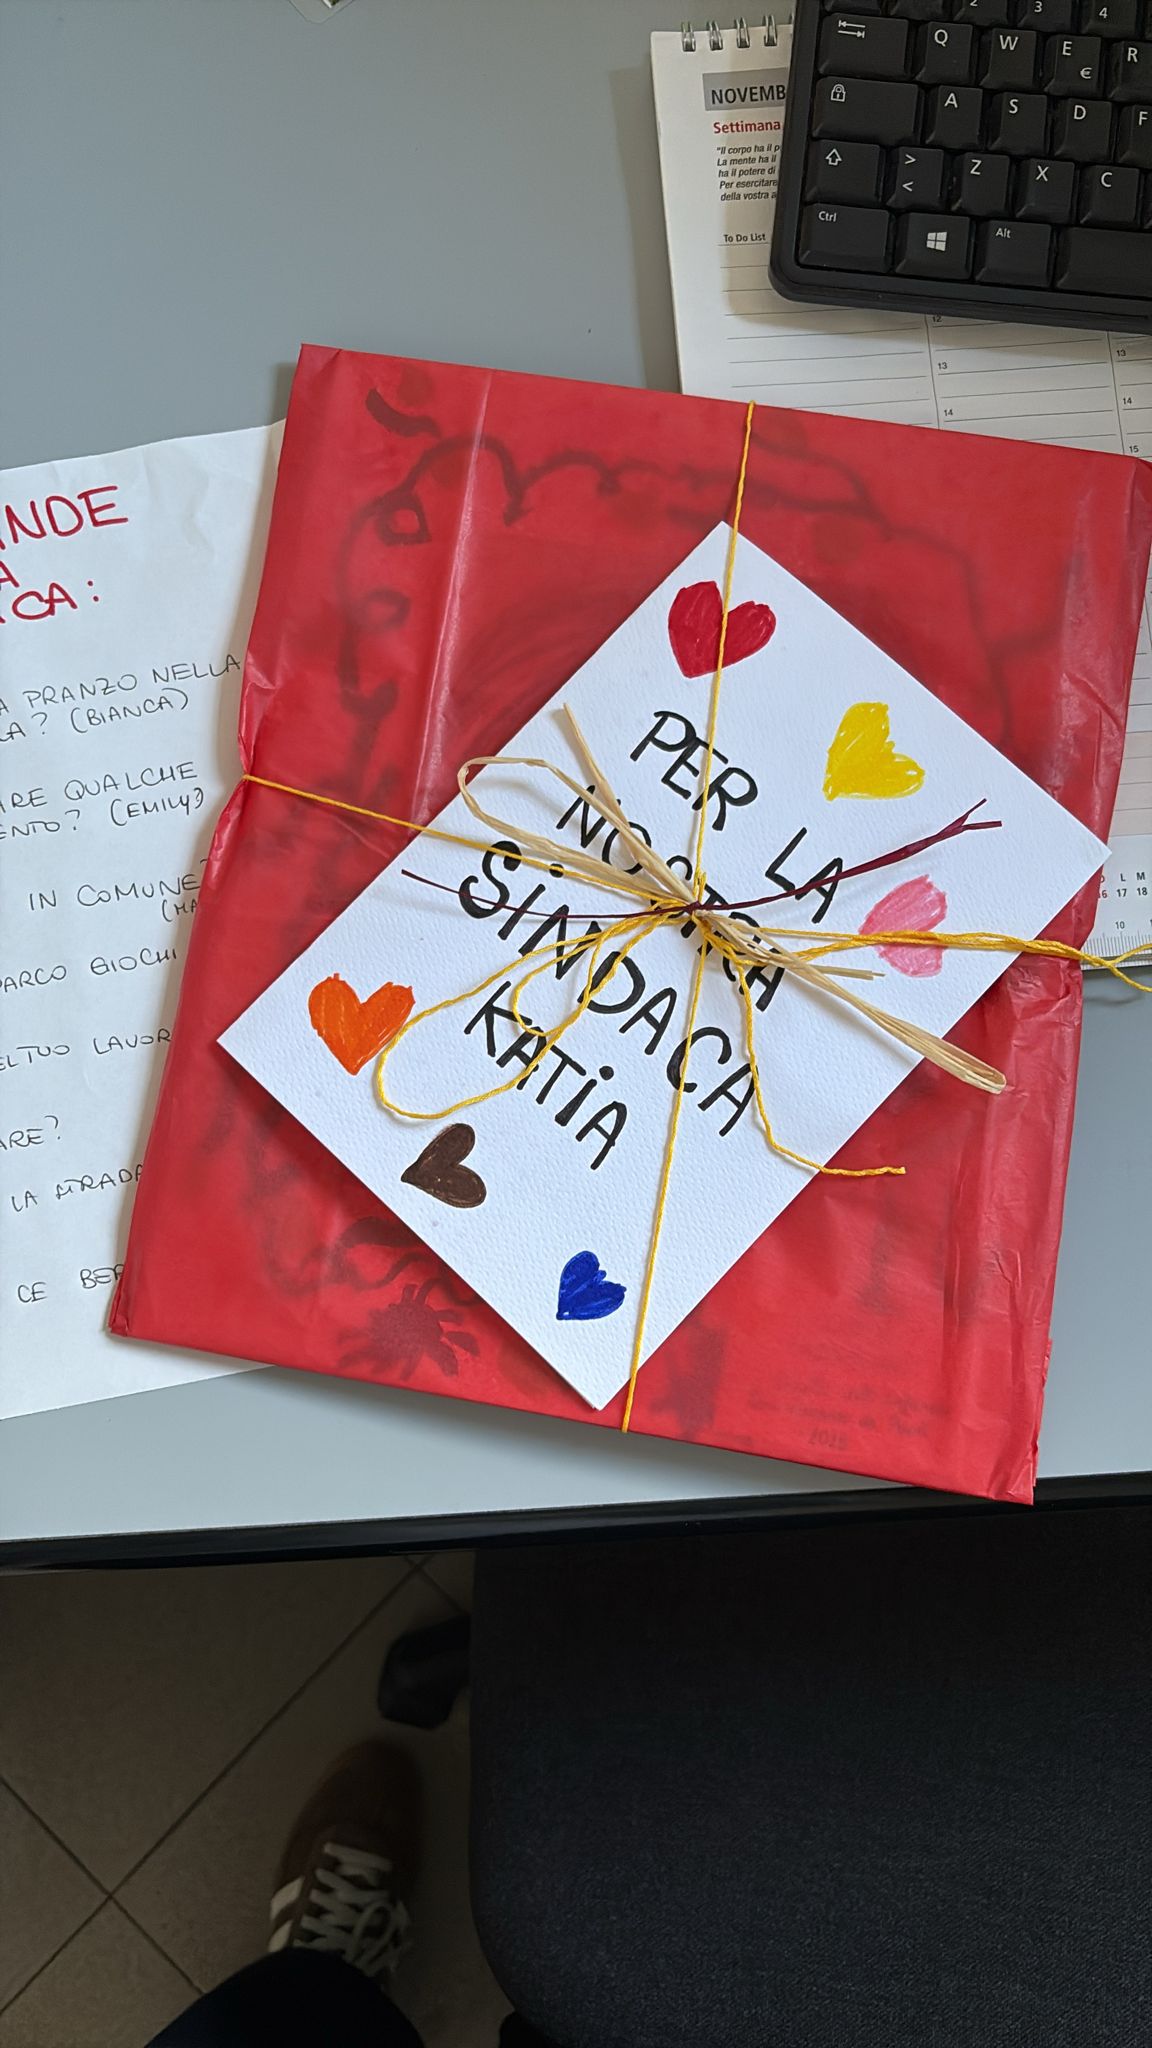 NOVEMB
Settimana
"Il corpo ha il p
La mente ha il
ha il potere di
Per esercitare
della vostra a
To Do List
12
13
14
13
14
15
2 3 4
Q W E R
€
A S D F
> Z X C
<
Ctrl Alt
INDE
A
ICA:
A PRANZO NELLA
LA? (BIANCA)
ARE QUALCHE
ENTO? (EMILY)
IN COMUNE
(MA
PARCO GIOCHI
EL TUO LAVOR
ARE?
LA STRADA
CE BER
PER LA
NOSTRA
SINDACA
KATIA
L M
16 17 18
10
2025